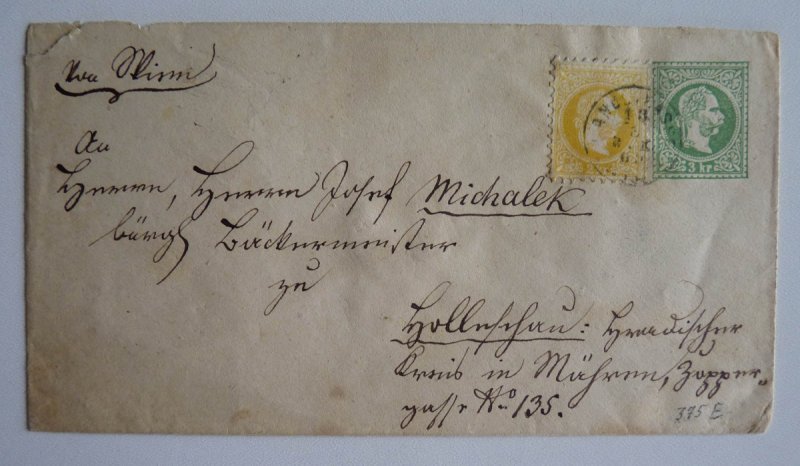 Von Wien
An
Herrn, Herrn Josef Michalek
bürgl Bäckermeister
zu
Holleschau: Hradischer
Kreis in Mähren, Zopper-
gasse No 135.
3 kr
375 E.